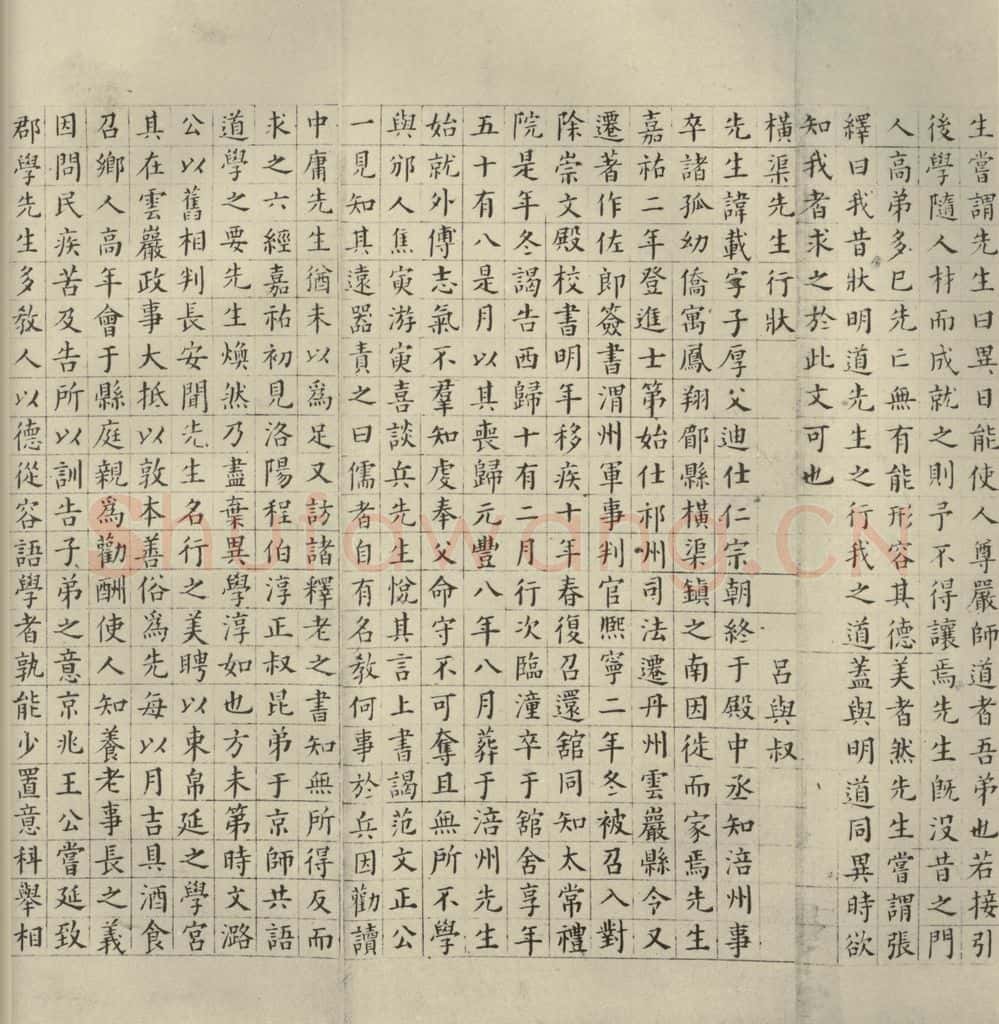 生嘗謂先生曰異日能使人尊嚴師道者吾弟也若接引
後學隨人材而成就之則予不得讓焉先生旣没昔之門
人高弟多已先亡無有能形容其德美者然先生嘗謂張
繹曰我昔狀明道先生之行我之道蓋與明道同異時欲
知我者求之於此文可也
橫渠先生行狀 呂與叔
先生諱載字子厚父迪仕仁宗朝終于殿中丞知涪州事
卒諸孤幼僑寓鳳翔郿縣橫渠鎮之南因徙而家焉先生
嘉祐二年登進士第始仕祁州司法遷丹州雲巖縣令又
遷著作佐郎簽書渭州軍事判官熙寧二年冬被召入對
除崇文殿校書明年移疾十年春復召還舘同知太常禮
院是年冬謁告西歸十有二月行次臨潼卒于舘舍享年
五十有八是月以其喪歸元豐八年八月葬于涪州先生
始就外傅志氣不羣知虔奉父命守不可奪且無所不學
與邠人焦寅游寅喜談兵先生悅其言上書謁范文正公
一見知其遠器責之曰儒者自有名敎何事於兵因勸讀
中庸先生猶未以爲足又訪諸釋老之書知無所得反而
求之六經嘉祐初見洛陽程伯淳正叔昆弟于京師共語
道學之要先生煥然乃盡棄異學淳如也方未第時文潞
公以舊相判長安聞先生名行之美聘以束帛延之學宮
其在雲巖政事大抵以敦本善俗爲先每以月吉具酒食
召鄉人高年會于縣庭親爲勸酬使人知養老事長之義
因問民疾苦及告所以訓告子弟之意京兆王公嘗延致
郡學先生多敎人以德從容語學者孰能少置意科舉相
Shutowang.CN